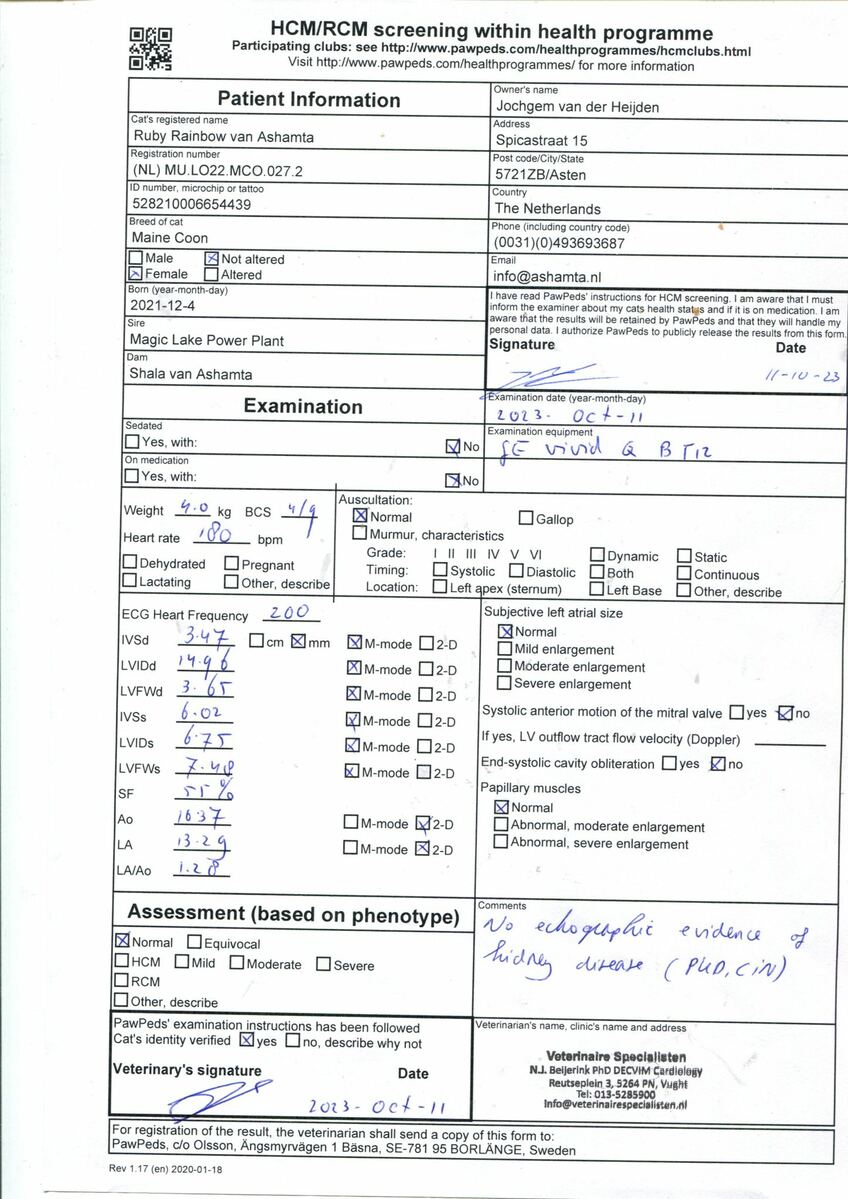 HCM/RCM screening within health programme
Participating clubs: see http://www.pawpeds.com/healthprogrammes/hcmclubs.html
Visit http://www.pawpeds.com/healthprogrammes/ for more information
Patient Information
Cat's registered name
Ruby Rainbow van Ashamta
Registration number
(NL) MU.LO22.MCO.027.2
ID number, microchip or tattoo
528210006654439
Breed of cat
Maine Coon
Male Not altered
Female Altered
Born (year-month-day)
2021-12-4
Sire
Magic Lake Power Plant
Dam
Shala van Ashamta
Owner's name
Jochgem van der Heijden
Address
Spicastraat 15
Post code/City/State
5721ZB/Asten
Country
The Netherlands
Phone (including country code)
(0031)(0)493693687
Email
info@ashamta.nl
I have read PawPeds' instructions for HCM screening. I am aware that I must
inform the examiner about my cats health status and if it is on medication. I am
aware that the results will be retained by PawPeds and that they will handle my
personal data. I authorize PawPeds to publicly release the results from this form.
Signature Date
11-10-23
Examination
Sedated
Yes, with: No
On medication
Yes, with: No
Examination date (year-month-day)
2023- Oct-11
Examination equipment
GE vivid Q BT12
Weight 4.0 kg BCS 4/9
Heart rate 180 bpm
Dehydrated Pregnant
Lactating Other, describe
Auscultation:
Normal Gallop
Murmur, characteristics
Grade: I II III IV V VI Dynamic Static
Timing: Systolic Diastolic Both Continuous
Location: Left apex (sternum) Left Base Other, describe
ECG Heart Frequency 200
IVSd 3.47 cm mm M-mode 2-D
LVIDd 14.96 M-mode 2-D
LVFWd 3.65 M-mode 2-D
IVSs 6.02 M-mode 2-D
LVIDs 6.75 M-mode 2-D
LVFWs 7.48 M-mode 2-D
SF 55%
Ao 10.37 M-mode 2-D
LA 13.29 M-mode 2-D
LA/Ao 1.28
Subjective left atrial size
Normal
Mild enlargement
Moderate enlargement
Severe enlargement
Systolic anterior motion of the mitral valve yes no
If yes, LV outflow tract flow velocity (Doppler)
End-systolic cavity obliteration yes no
Papillary muscles
Normal
Abnormal, moderate enlargement
Abnormal, severe enlargement
Assessment (based on phenotype)
Normal Equivocal
HCM Mild Moderate Severe
RCM
Other, describe
Comments
No echographic evidence of
kidney disease (PKD, CIN)
PawPeds' examination instructions has been followed
Cat's identity verified yes no, describe why not
Veterinary's signature Date
2023-Oct-11
Veterinarian's name, clinic's name and address
Veterinaire Specialisten
N.J. Beijerink PhD DECVIM Cardiology
Reutseplein 3, 5264 PN, Vught
Tel: 013-5285900
Info@veterinairespecialisten.nl
For registration of the result, the veterinarian shall send a copy of this form to:
PawPeds, c/o Olsson, Ängsmyrvägen 1 Bäsna, SE-781 95 BORLÄNGE, Sweden
Rev 1.17 (en) 2020-01-18